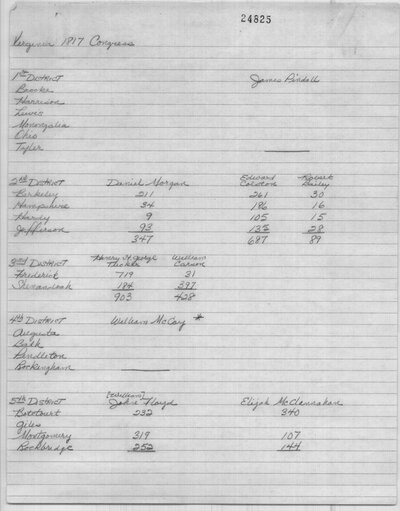 24825
Virginia 1817 Congress
1st District James Pindall
Brooke
Harrison
Lewis
Monongalia
Ohio
Tyler
2nd District Daniel Morgan Edward Colston Robert Bailey
Berkeley 211 261 30
Hampshire 34 186 16
Hardy 9 105 15
Jefferson 93 135 28
347 687 89
3rd District Henry St. George Tucker William Carson
Frederick 719 31
Shenandoah 184 397
903 428
4th District William McCoy *
Augusta
Bath
Pendleton
Rockingham
5th District [William] John Floyd Elijah McClanahan
Botetourt 232 340
Giles
Montgomery 319 107
Rockbridge 252 144